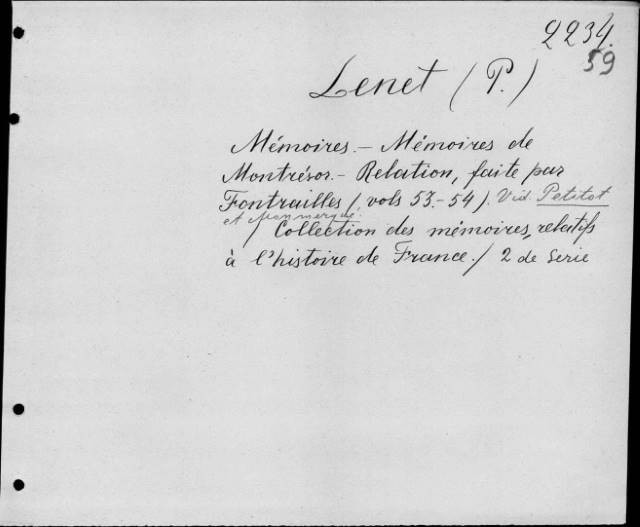 2234.
59
Lenet (P.)
Mémoires. - Mémoires de
Montrésor. - Relation, faite par
Fontrailles (vols 53.-54). Vid. Petitot
et Monmerqué.
Collection des mémoires, relatifs
à l'histoire de France. / 2 de Serie